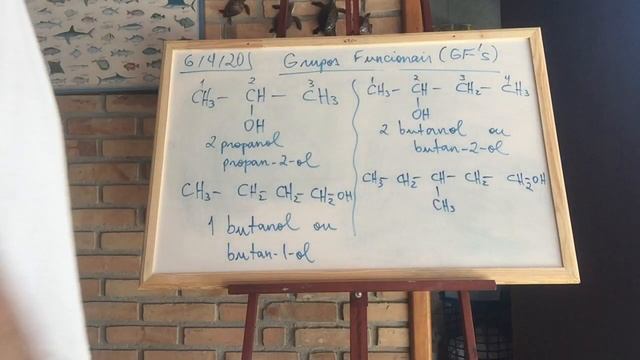 6/4/20 Grupos Funcionais (GF's)
1 2 3
CH3 - CH - CH3
OH
2 propanol
propan-2-ol
CH3 - CH2 - CH2 - CH2 - OH
1 butanol ou
butan-1-ol
1 2 3 4
CH3 - CH - CH2 - CH3
OH
2 butanol ou
butan-2-ol
CH3 - CH2 - CH - CH2 - CH2 - OH
CH3